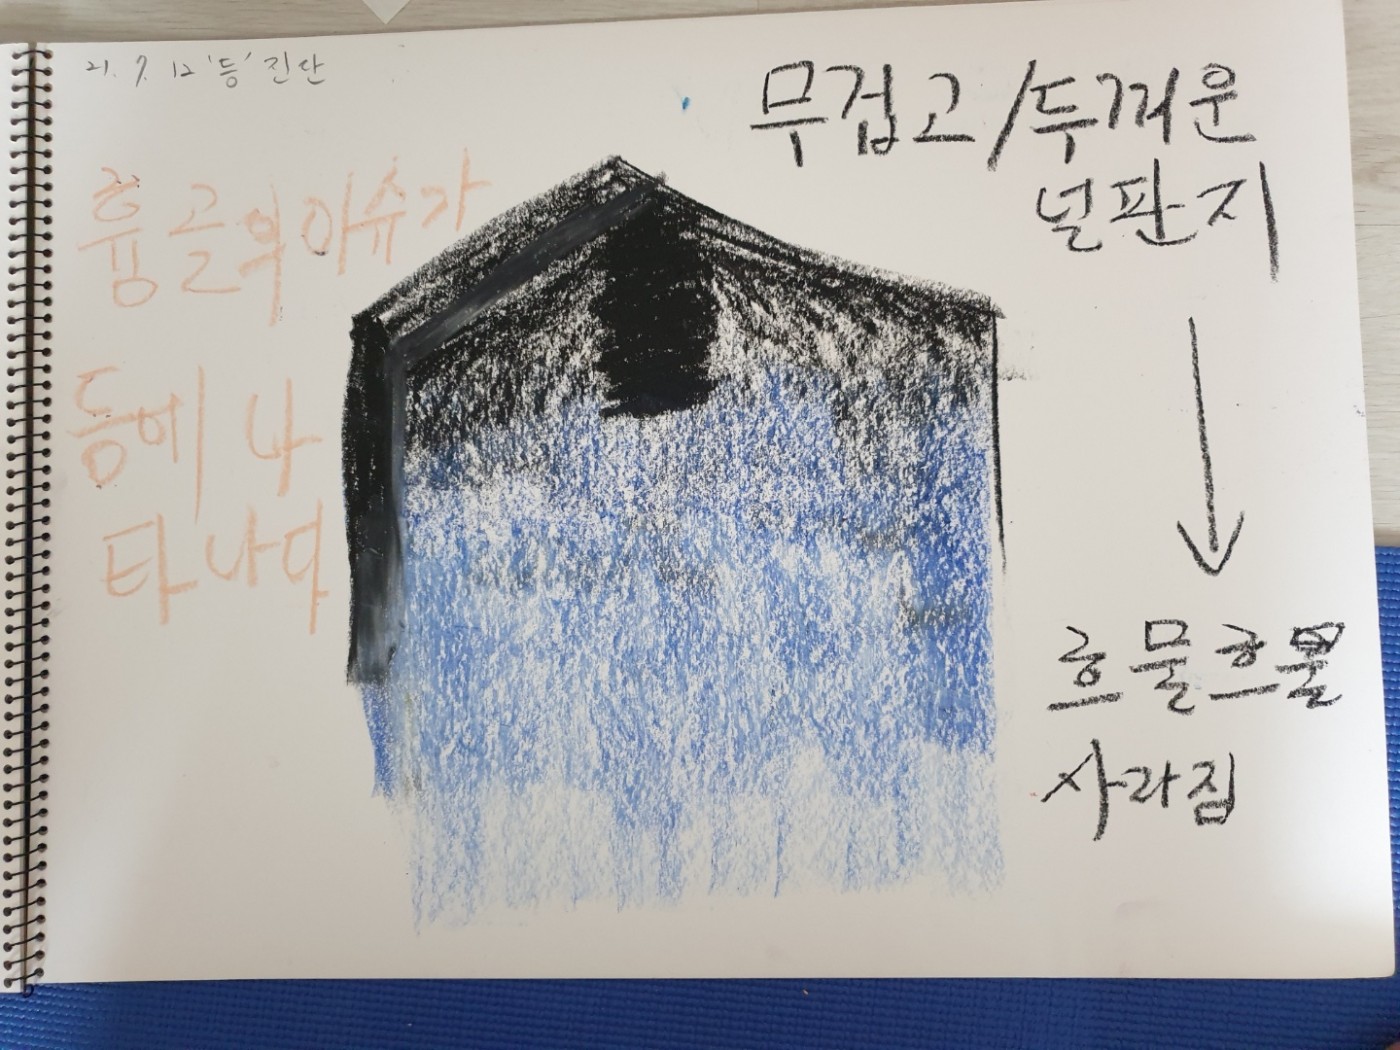 21. 7. 12 '등' 진단
무겁고/두꺼운
널판지
흉골의 이슈가
등에 나
타나다
흐물흐물
사라짐